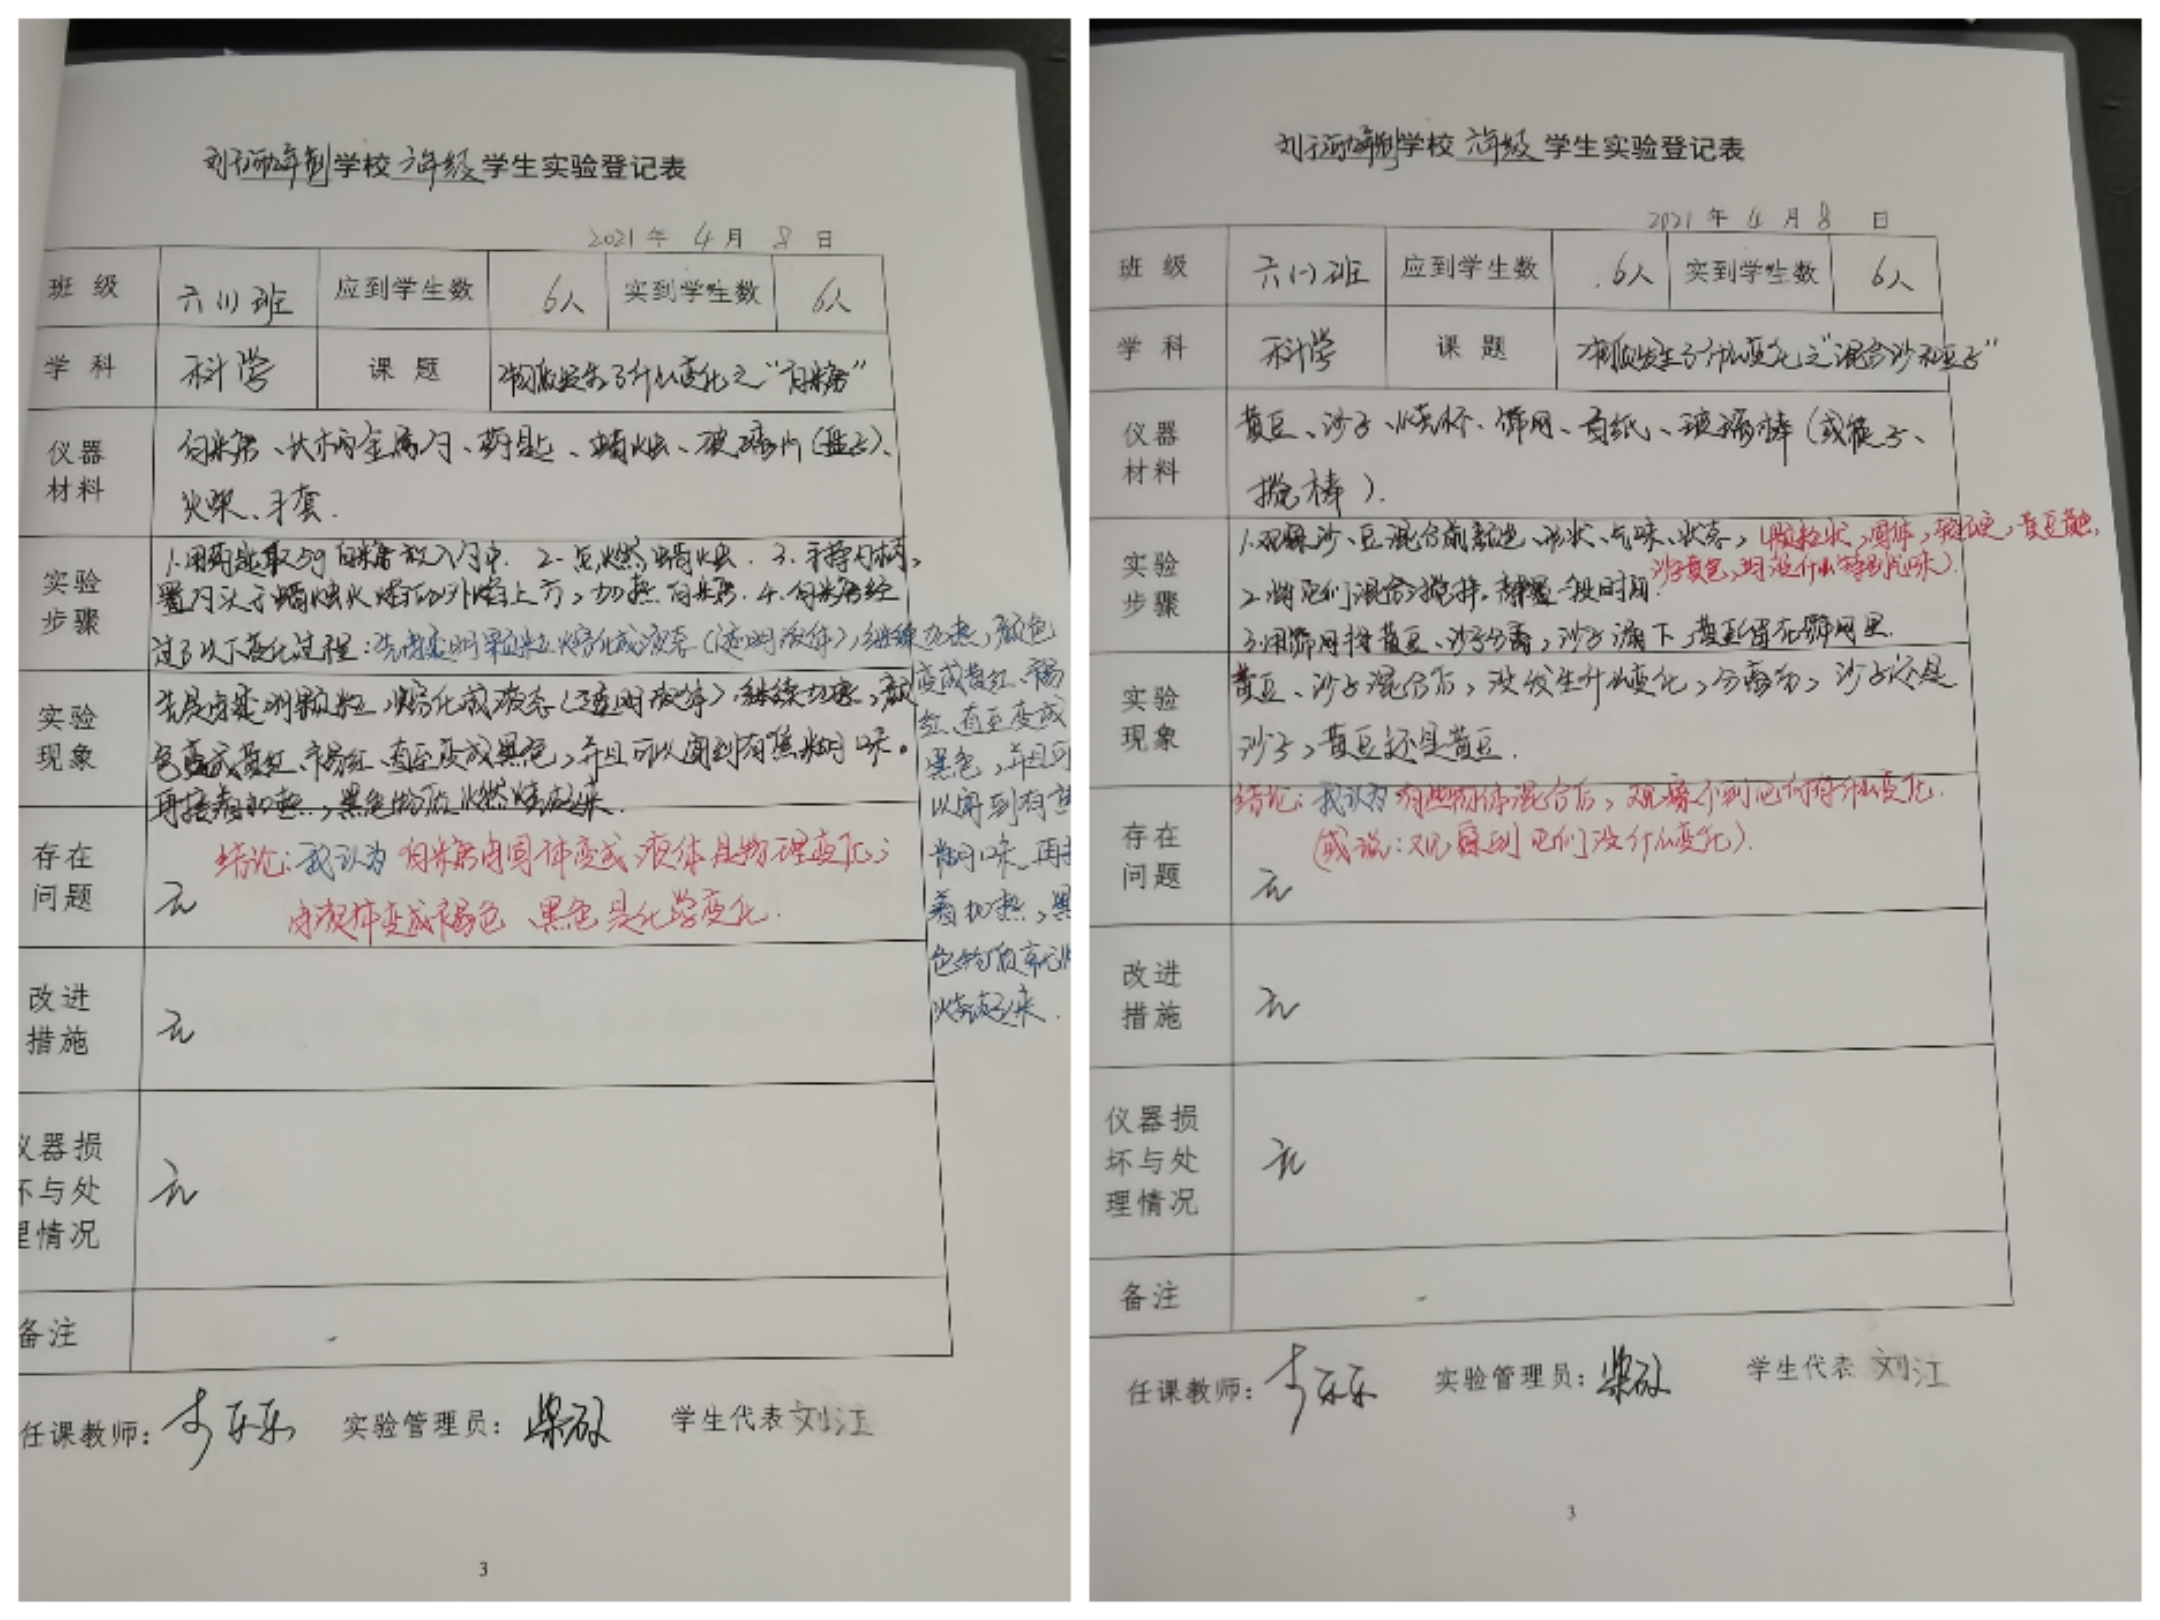 刘河九年制学校六年级学生实验登记表
2021年 4月 8日
班级 六(1)班 应到学生数 6人 实到学生数 6人
学科 科学 课题 物质发生了什么变化之“白糖”
仪器材料
白糖、长木柄金属勺、药匙、蜡烛、玻璃片(盘子)、
火柴、手套.
实验步骤
1.用药匙取5g白糖放入勺中. 2.点燃蜡烛. 3.手持勺柄,
置勺头于蜡烛火焰的外焰上方,加热白糖. 4.白糖经
过了以下变化过程:先由透明颗粒熔化成液态(透明液体),继续加热,颜色
变成黄红、褐
红、直至变成
黑色,并且可
以闻到有焦
糊口味.再接
着加热,黑
色物质燃
烧起来.
实验现象
先是由透明颗粒,熔化成液态(透明液体),继续加热,颜
色变成黄红、褐红、直至变成黑色,并且可以闻到有焦糊口味。
再接着加热,黑色物质燃烧起来.
存在问题
结论:我认为白糖由固体变成液体是物理变化;
无
由液体变成褐色、黑色是化学变化.
改进措施 无
仪器损坏与处理情况 无
备注
任课教师: 李乐乐 实验管理员: 柴砹 学生代表 刘江
3
刘河九年制学校六年级学生实验登记表
2021年 4月 8日
班级 六(一)班 应到学生数 6人 实到学生数 6人
学科 科学 课题 物质发生了什么变化之“混合沙和豆子”
仪器材料
黄豆、沙子、烧杯、筛网、白纸、玻璃棒(或筷子、
搅棒).
实验步骤
1.观察沙、豆混合前颜色、形状、气味、状态,(颗粒状,固体,较硬,黄豆黄色,
沙子黄色,均没什么特别气味).
2.将它们混合搅拌,静置一段时间.
3.用筛网将黄豆、沙子分离,沙子漏下,黄豆留在筛网里.
实验现象
黄豆、沙子混合后,没发生什么变化,分离后,沙子还是
沙子,黄豆还是黄豆.
存在问题
结论:我认为有些物体混合后,观察不到它们有什么变化.
(或说:观察到它们没什么变化).
无
改进措施 无
仪器损坏与处理情况 无
备注
任课教师: 李乐乐 实验管理员: 柴砹 学生代表 刘江
3